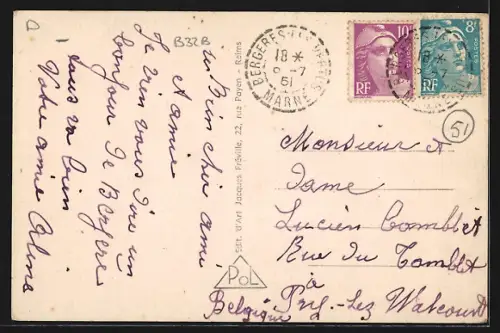 a
B32B
un Bien cher ami
et amie
Je viens vous dire un
bonjour de Bergere
tous va bien
Votre amie Celina
Edit. d'Art Jacques Fréville, 22, rue Payen - Reims
POL
BERGERES-LES-VERTUS
18 *
9 -7
51
MARNE
10F
RF
8F
RF
51
Monsieur et
Dame
Lucien Comblet
Rue du Tomblet
à
Pry-Lez Walcourt
Belgique